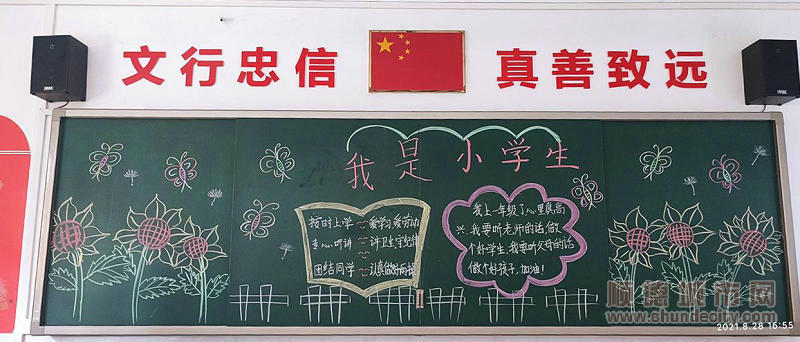 文行忠信
真善致远
我是小学生
按时上学~爱学习爱劳动
专心听讲~讲卫生守纪律
团结同学~认真做好作业
我上一年级了心里真高
兴,我要听老师的话,做
个好学生,我要听父母的话
做个好孩子,加油!
顺德城市网
www.shundecity.com
2021.8.28 16:55